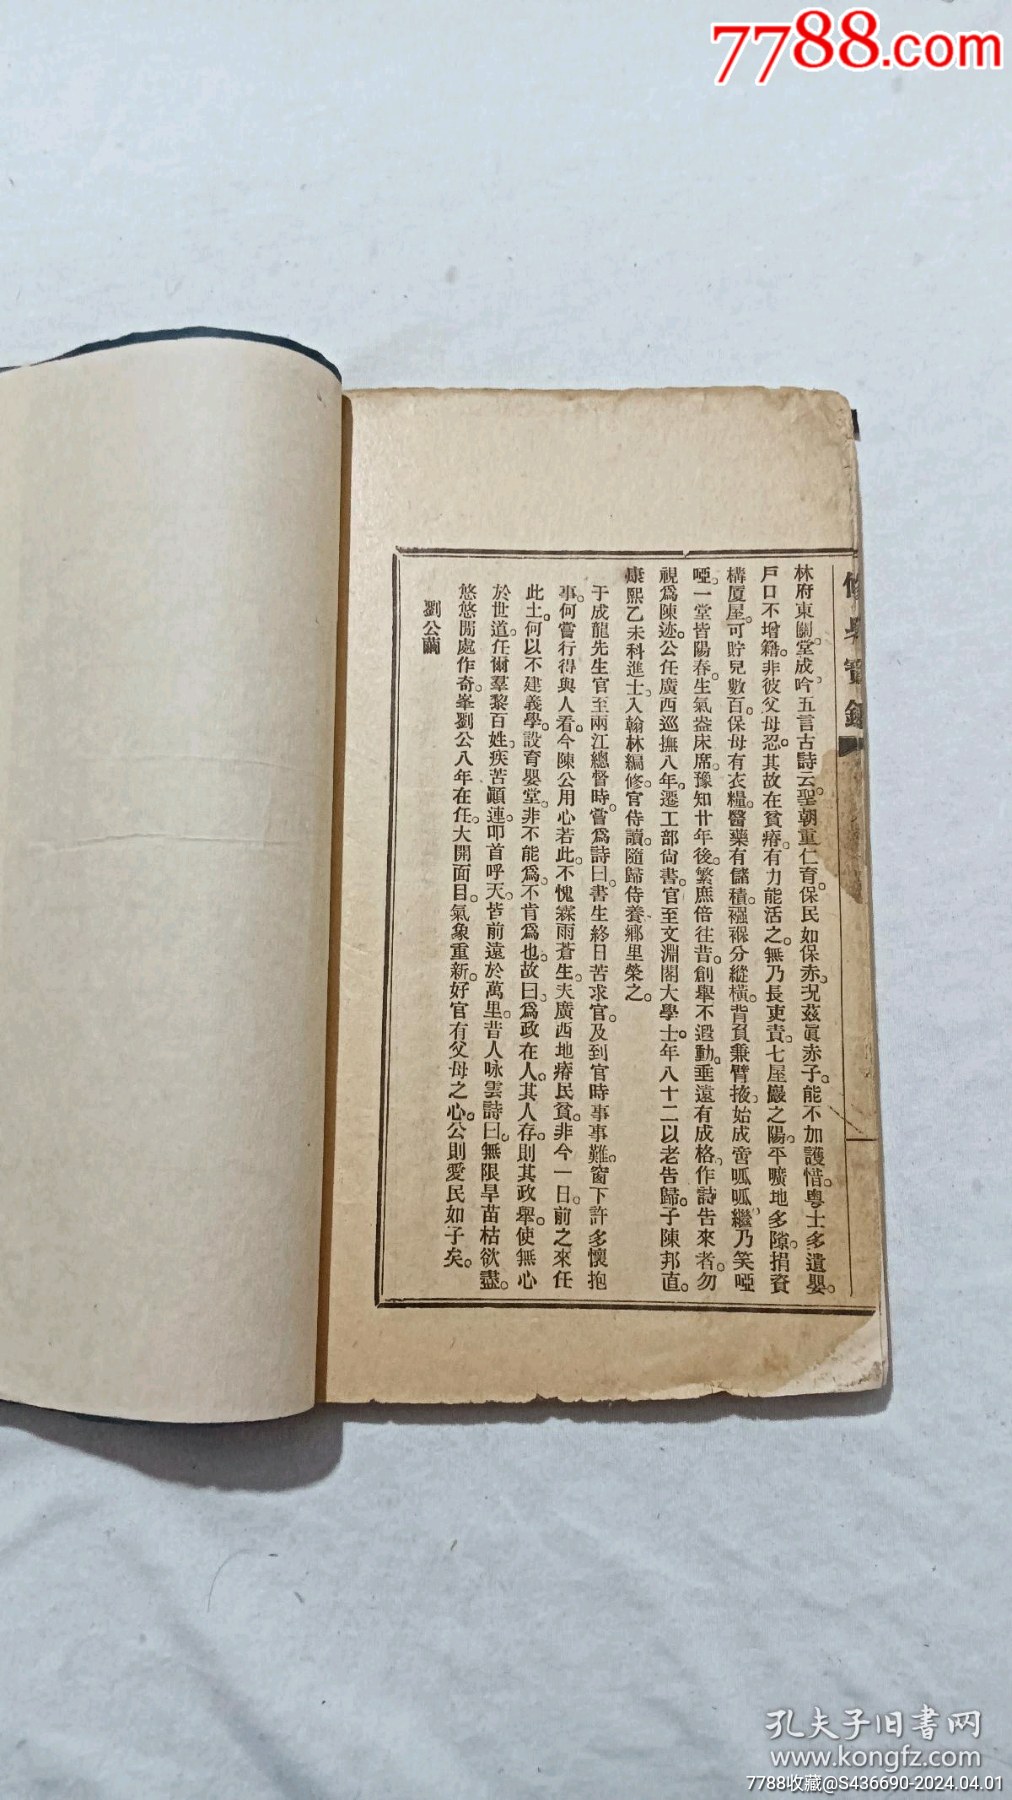 7788.com
林府東關。堂成吟五言古詩云。聖朝重仁育。保民如保赤。况茲眞赤子。能不加護惜。粵士多遺嬰。
戶口不增籍。非彼父母忍。其故在貧瘠。有力能活之。無乃長吏責。七屋巖之陽。平曠地多隙。捐資
構厦屋。可貯兒數百。保母有衣糧。醫藥有儲積。襁褓分縱橫。背負兼臂掖。始成啻呱呱。繼乃笑啞
啞。一堂皆陽春。生氣盎床席。豫知廿年後。繁庶倍往昔。創舉不遐動。垂遠有成格。作詩告來者。勿
視爲陳迹。公任廣西巡撫八年。遷工部尙書。官至文淵閣大學士。年八十二以老告歸。子陳邦直。
康熙乙未科進士。入翰林編修。官侍讀。隨歸侍養鄉里榮之。
于成龍先生官至兩江總督時。嘗爲詩曰。書生終日苦求官。及到官時事事難。窗下許多懷抱
事。何嘗行得與人看。今陳公用心若此。不愧霖雨蒼生。夫廣西地瘠民貧。非今一日。前之來任
此土。何以不建義學。設育嬰堂。非不能爲。不肯爲也。故曰。爲政在人。其人存。則其政舉。使無心
於世道。任爾羣黎百姓。疾苦顚連。叩首呼天。苦前遠於萬里。昔人咏雲詩曰。無限旱苗枯欲盡。
悠悠閒處作奇峯。劉公八年在任。大開面目。氣象重新。好官有父母之心。公則愛民如子矣。
劉公繭
孔夫子旧書网
www.kongfz.com
7788收藏@S436690-2024.04.01